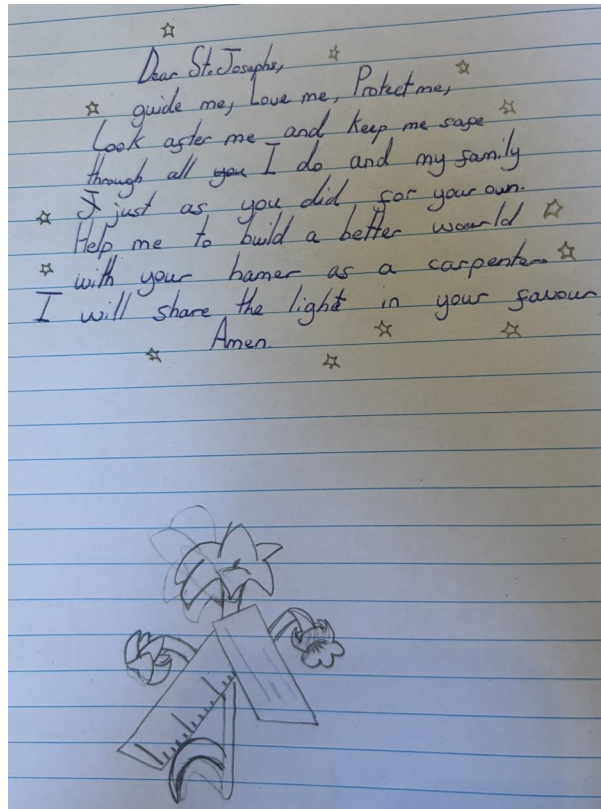 Dear St. Josephs,
guide me, Love me, Protect me,
Look after me and keep me safe
through all you I do and my family
I just as you did for your own.
Help me to build a better woarld
with your hamer as a carpenter.
I will share the light in your favour
Amen.